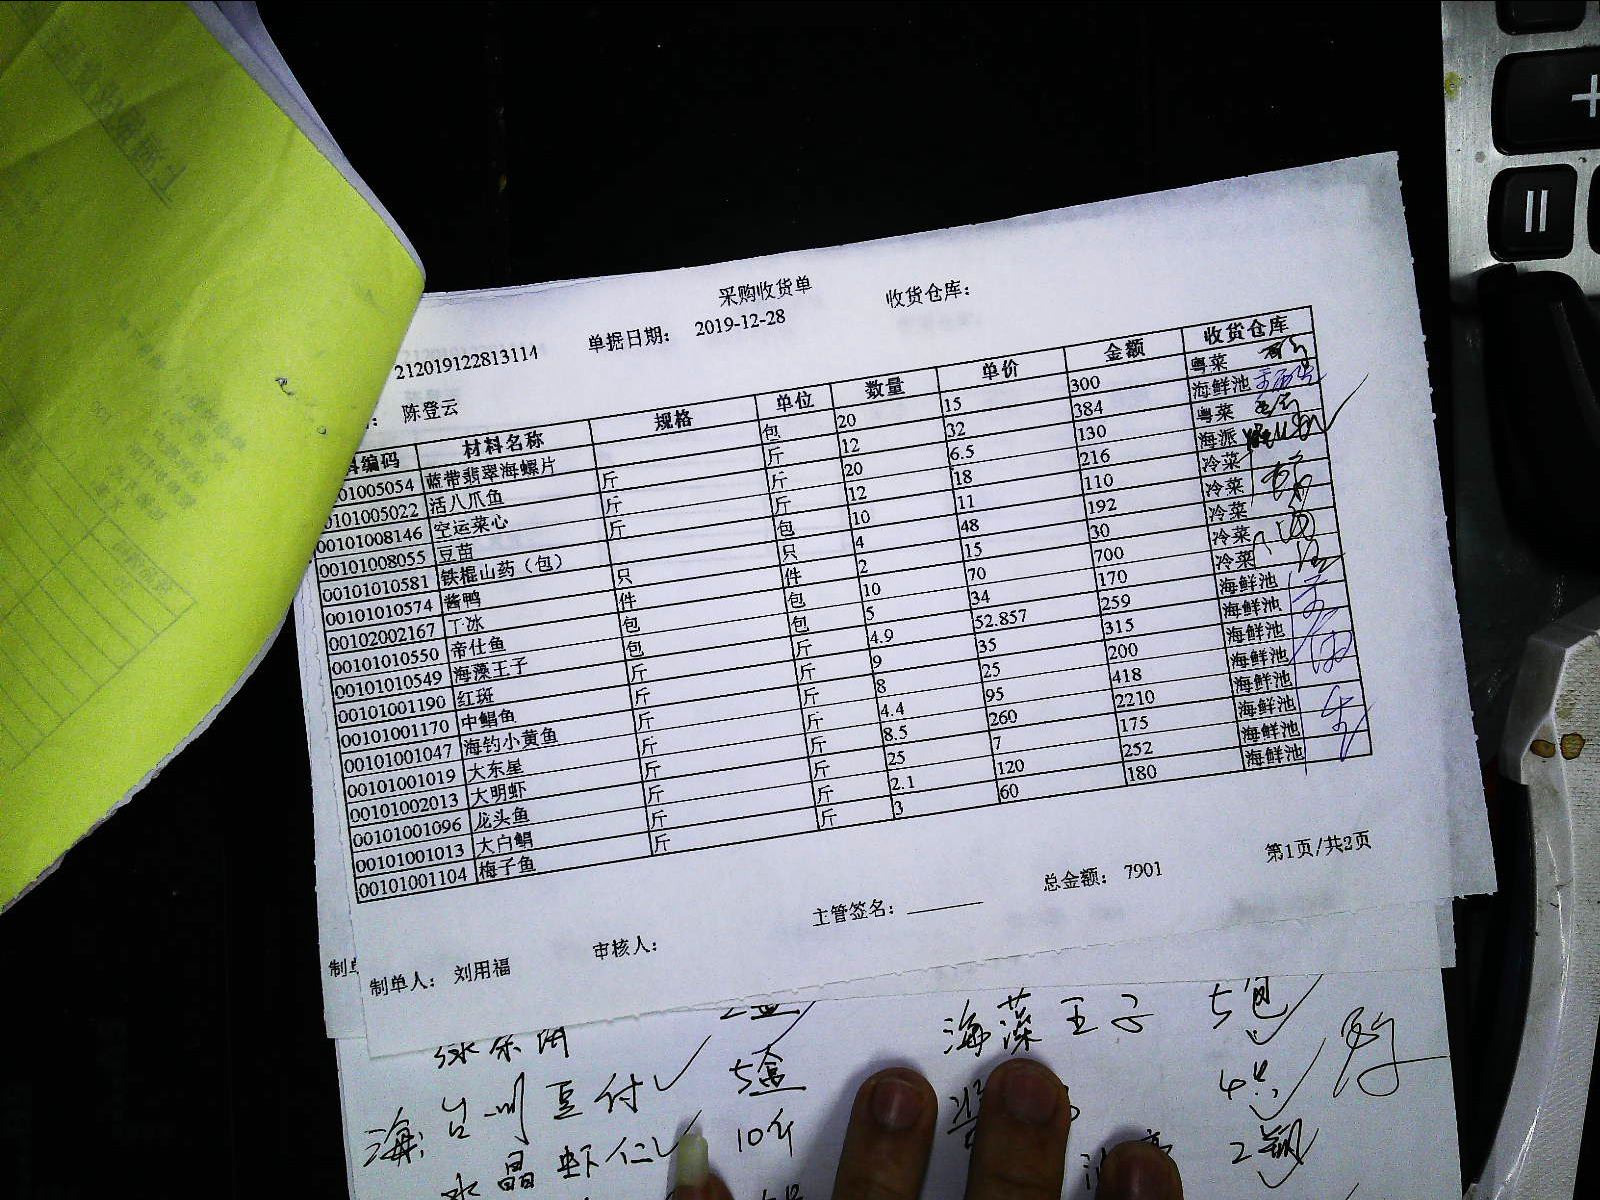 采购收货单
收货仓库：
单据日期： 2019-12-28
212019122813114
： 陈登云
料编码 材料名称 规格 单位 数量 单价 金额 收货仓库
01005054 蓝带翡翠海螺片 包 20 15 300 粤菜
0101005022 活八爪鱼 斤 斤 12 32 384 海鲜池
00101008146 空运菜心 斤 斤 20 6.5 130 粤菜
00101008055 豆苗 斤 斤 12 18 216 海派
00101010581 铁棍山药（包） 包 10 11 110 冷菜
00101010574 酱鸭 只 只 4 48 192 冷菜
00102002167 丁冰 件 件 2 15 30 冷菜
00101010550 帝仕鱼 包 包 10 70 700 冷菜
00101010549 海藻王子 包 包 5 34 170 冷菜
00101001190 红斑 斤 斤 4.9 52.857 259 海鲜池
00101001170 中鲳鱼 斤 斤 9 35 315 海鲜池
00101001047 海钓小黄鱼 斤 斤 8 25 200 海鲜池
00101001019 大东星 斤 斤 4.4 95 418 海鲜池
00101002013 大明虾 斤 斤 8.5 260 2210 海鲜池
00101001096 龙头鱼 斤 斤 25 7 175 海鲜池
00101001013 大白鲳 斤 斤 2.1 120 252 海鲜池
00101001104 梅子鱼 斤 斤 3 60 180 海鲜池
主管签名： 总金额： 7901 第1页/共2页
制单人： 刘用福 审核人：
制单
海藻王子 5包
海： 台州豆付 5盒
水晶虾仁 10斤 2瓶
+
=